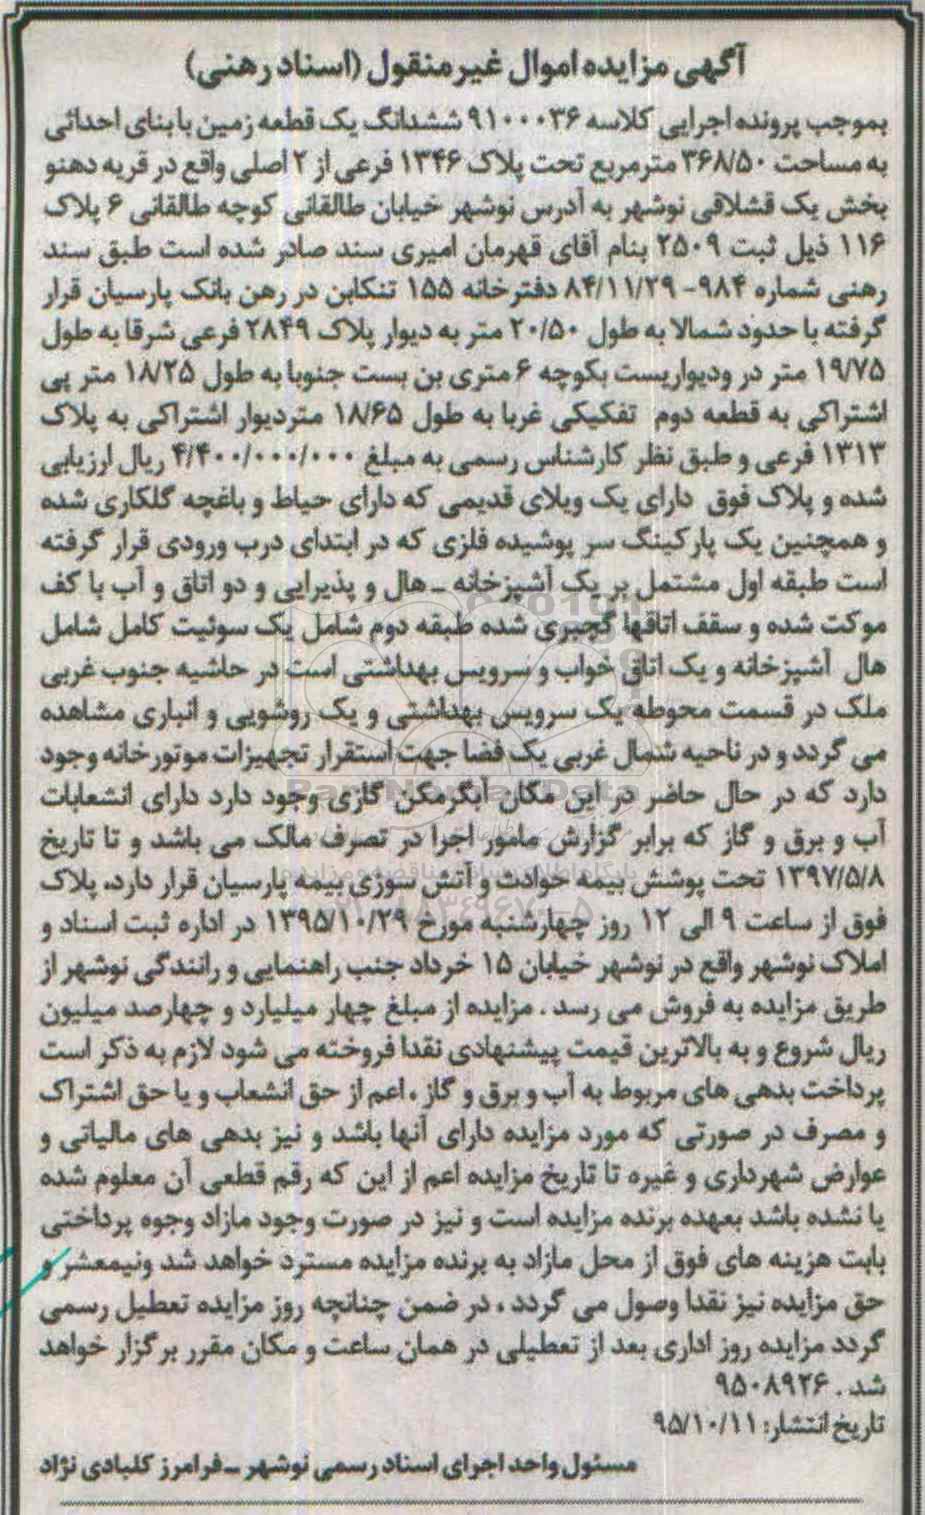 آگهی مزایده اموال غیر منقول (اسناد رهنی)
بموجب پرونده اجرایی کلاسه ۹۱۰۰۰۳۶ ششدانگ یک قطعه زمین با بنای احداثی
به مساحت ۳۶۸/۵۰ مترمربع تحت پلاک ۱۳۴۶ فرعی از ۲ اصلی واقع در قریه دهنو
بخش یک قشلاقی نوشهر به آدرس نوشهر خیابان طالقانی کوچه طالقانی ۶ پلاک
۱۱۶ ذیل ثبت ۲۵۰۹ بنام آقای قهرمان امیری سند صادر شده است طبق سند
رهنی شماره ۹۸۴- ۸۴/۱۱/۲۹ دفترخانه ۱۵۵ تنکابن در رهن بانک پارسیان قرار
گرفته با حدود شمالا به طول ۲۰/۵۰ متر به دیوار پلاک ۲۸۴۹ فرعی شرقا به طول
۱۹/۷۵ متر در ودیواریست بکوچه ۶ متری بن بست جنوبا به طول ۱۸/۲۵ متر پی
اشتراکی به قطعه دوم تفکیکی غربا به طول ۱۸/۶۵ متردیوار اشتراکی به پلاک
۱۳۱۳ فرعی و طبق نظر کارشناس رسمی به مبلغ ۴/۴۰۰/۰۰۰/۰۰۰ ریال ارزیابی
شده و پلاک فوق دارای یک ویلای قدیمی که دارای حیاط و باغچه گلکاری شده
و همچنین یک پارکینگ سر پوشیده فلزی که در ابتدای درب ورودی قرار گرفته
است طبقه اول مشتمل بر یک آشپزخانه ـ هال و پذیرایی و دو اتاق و آب با کف
موکت شده و سقف اتاقها گچبری شده طبقه دوم شامل یک سوئیت کامل شامل
هال آشپزخانه و یک اتاق خواب و سرویس بهداشتی است در حاشیه جنوب غربی
ملک در قسمت محوطه یک سرویس بهداشتی و یک روشویی و انباری مشاهده
می گردد و در ناحیه شمال غربی یک فضا جهت استقرار تجهیزات موتورخانه وجود
دارد که در حال حاضر در این مکان آبگرمکن گازی وجود دارد دارای انشعابات
آب و برق و گاز که برابر گزارش مامور اجرا در تصرف مالک می باشد و تا تاریخ
۱۳۹۷/۵/۸ تحت پوشش بیمه حوادث و آتش سوزی بیمه پارسیان قرار دارد. پلاک
فوق از ساعت ۹ الی ۱۲ روز چهارشنبه مورخ ۱۳۹۵/۱۰/۲۹ در اداره ثبت اسناد و
املاک نوشهر واقع در نوشهر خیابان ۱۵ خرداد جنب راهنمایی و رانندگی نوشهر از
طریق مزایده به فروش می رسد . مزایده از مبلغ چهار میلیارد و چهارصد میلیون
ریال شروع و به بالاترین قیمت پیشنهادی نقدا فروخته می شود لازم به ذکر است
پرداخت بدهی های مربوط به آب و برق و گاز ، اعم از حق انشعاب و یا حق اشتراک
و مصرف در صورتی که مورد مزایده دارای آنها باشد و نیز بدهی های مالیاتی و
عوارض شهرداری و غیره تا تاریخ مزایده اعم از این که رقم قطعی آن معلوم شده
یا نشده باشد بعهده برنده مزایده است و نیز در صورت وجود مازاد وجوه پرداختی
بابت هزینه های فوق از محل مازاد به برنده مزایده مسترد خواهد شد ونیمعشر و
حق مزایده نیز نقدا وصول می گردد ، در ضمن چنانچه روز مزایده تعطیل رسمی
گردد مزایده روز اداری بعد از تعطیلی در همان ساعت و مکان مقرر برگزار خواهد
شد . ۹۵۰۸۹۲۶
تاریخ انتشار: ۹۵/۱۰/۱۱
مسئول واحد اجرای اسناد رسمی نوشهر ـ فرامرز کلبادی نژاد